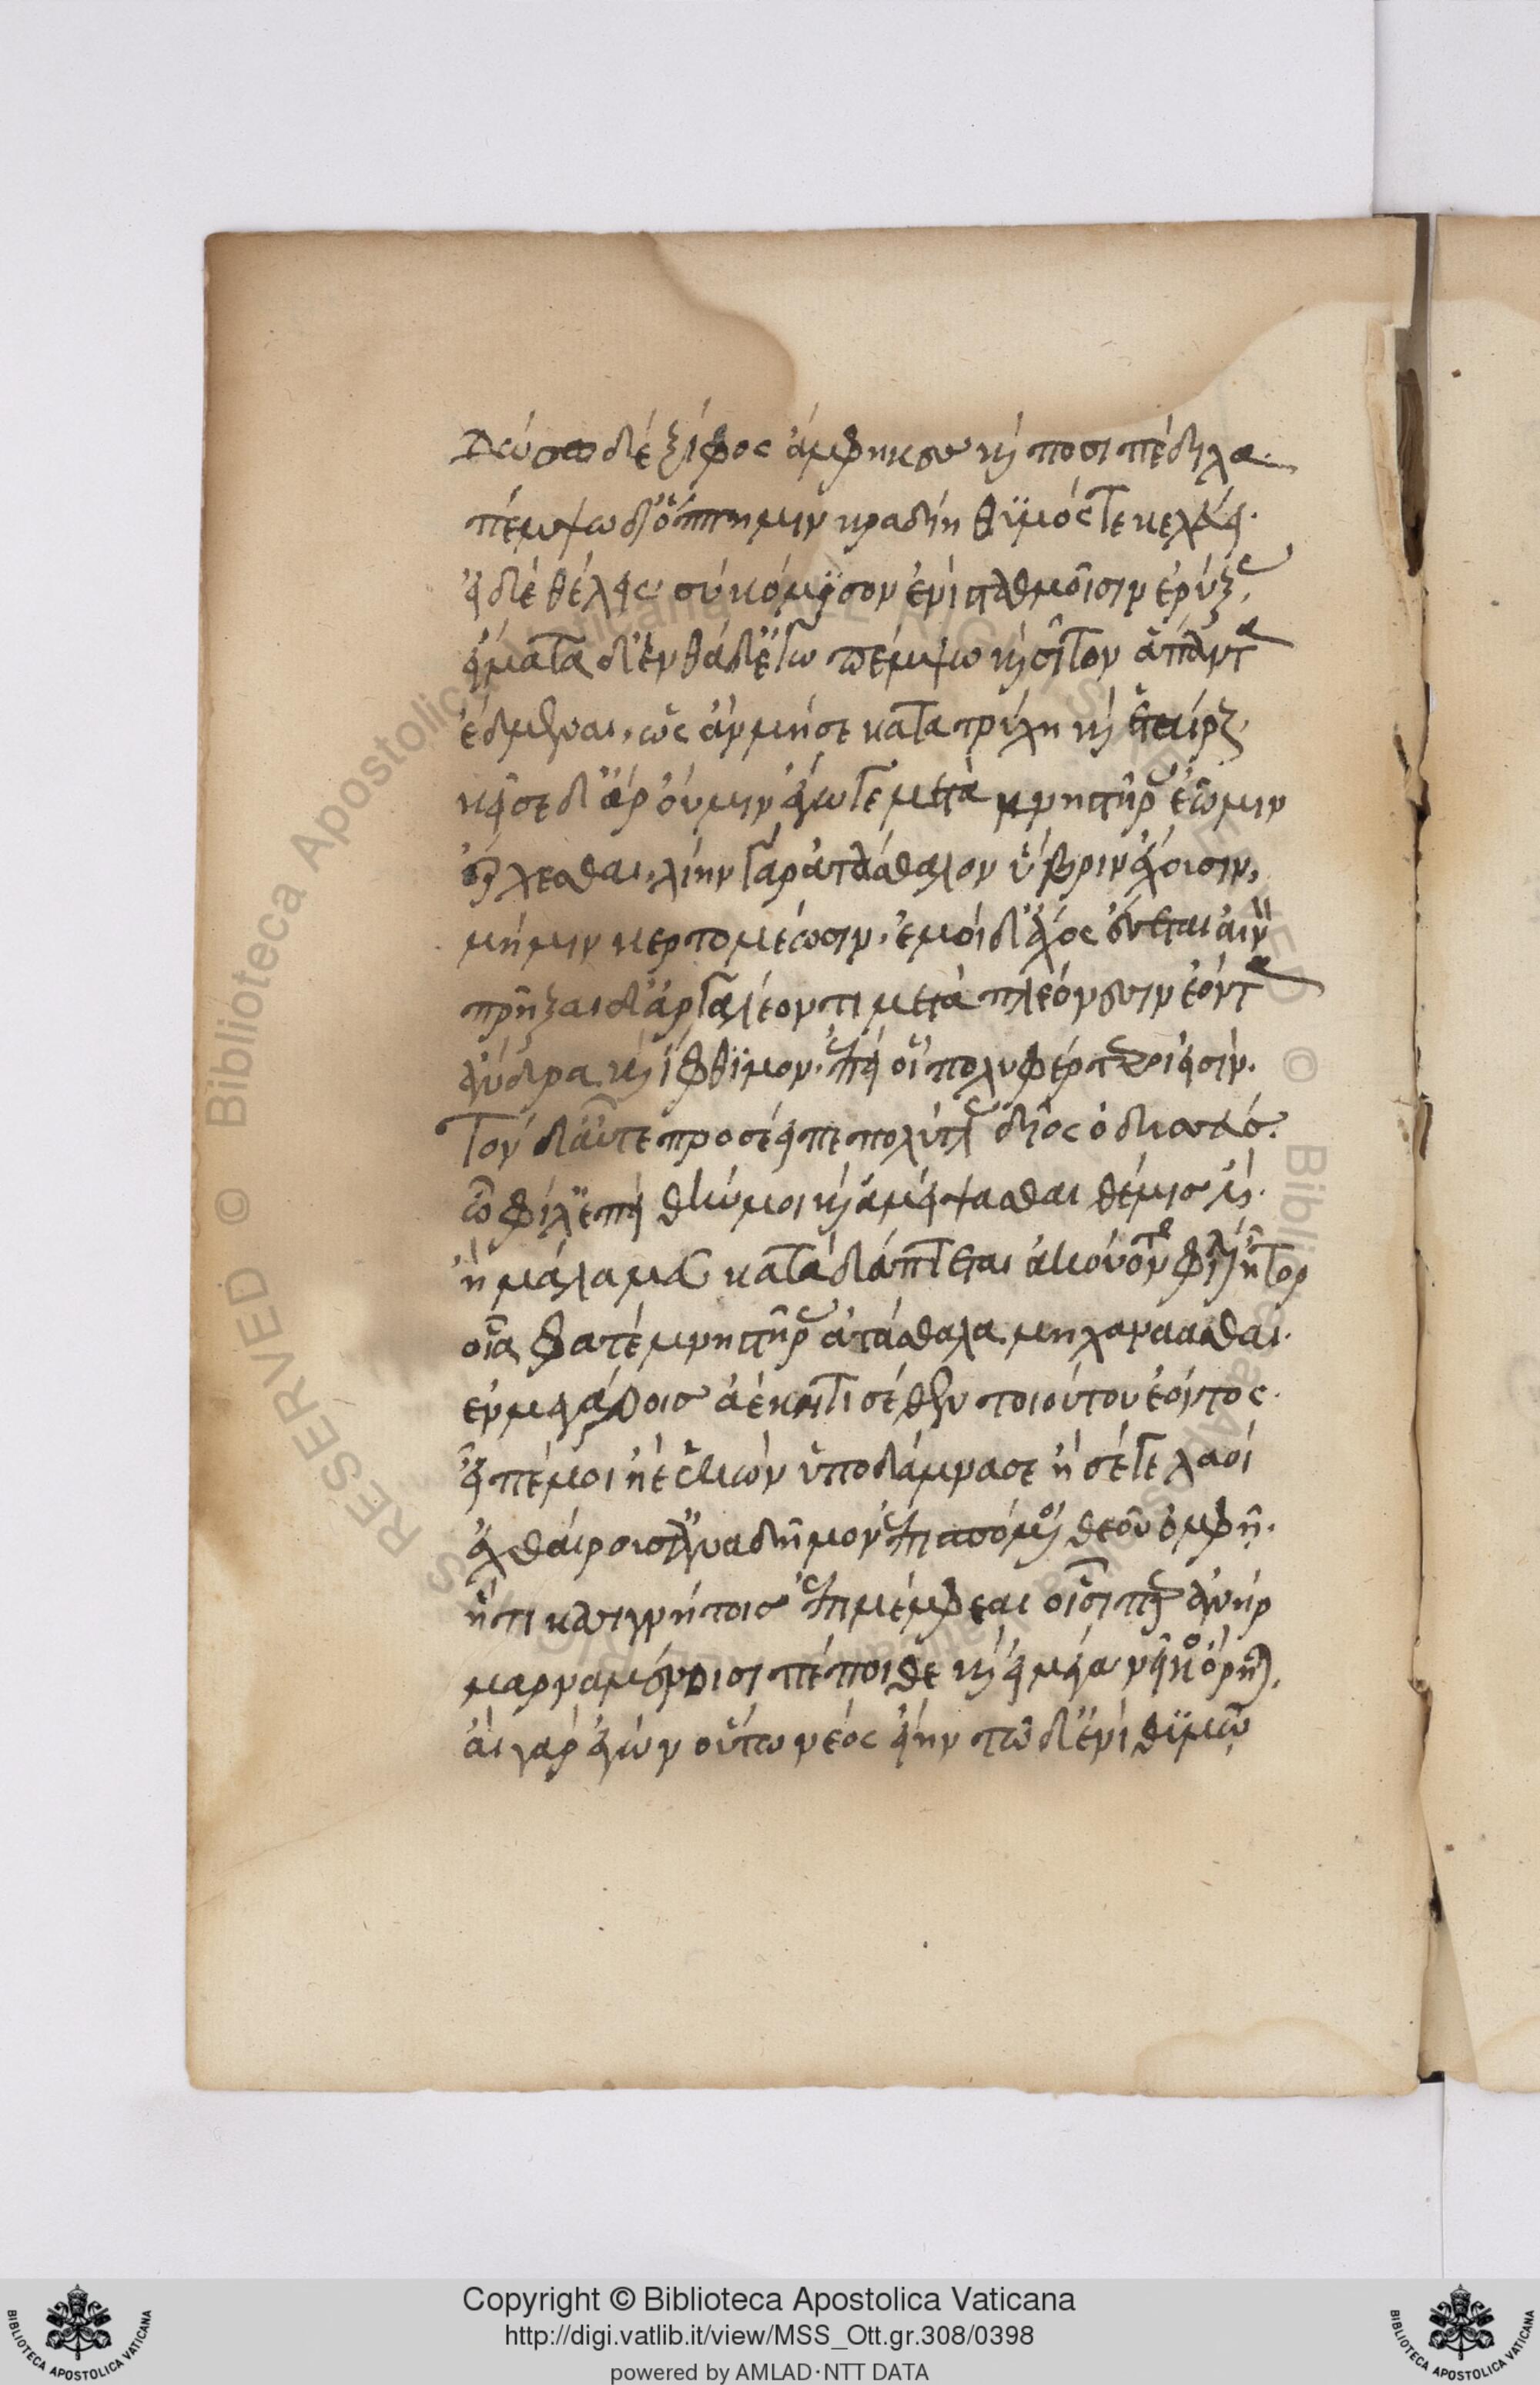 δώσω δὲ ξίφος ἄμφηκες καὶ ποσὶ πέδιλα.
πέμψω δ' ὅππη μιν κραδίη θϋμός τε κελεύει.
εἰ δ' ἐθέλεις σὺ κόμϊσον ἐνὶ σταθμοῖσιν ἐρύξας,
εἵματα δ' ἐνθάδ' ἐγὼ πέμψω καὶ σῖτον ἅπαντα
ἔδμεναι, ὥς ἂν μή σε κατατρύχη καὶ ἑταίρους.
κεῖσε δ' ἂν οὔ μιν ἐγώ γε μετὰ μνηστῆρας ἐῶμιν
ἔρχεσθαι, λίην γὰρ ἀτάσθαλον ὕβριν ἔχουσιν,
μή μιν κερτομέωσιν, ἐμοὶ δ' ἄχος ἔσσεται αἰνόν
πρῆξαι δ' ἀργαλέον τι μετὰ πλεόνεσσιν ἐόντα
ἄνδρα καὶ ἴφθϊμον. ἐπεὶ πολὺ φέρτεροι εἰσίν.
Τὸν δ' αὖτε προσέειπε πολύτλας δῖος ὀδυσσεύς.
ὦ φίλ' ἐπεὶ θήν μοι καὶ ἀμείψασθαι θέμις ἐστίν.
ἦ μάλα μευ καταδάπτεται ἀκούοντος φίλον ἦτορ
οἷα φατὲ μνηστῆρας ἀτάσθαλα μηχανάασθαι.
ἐν μεγάροις ἀέκητι σέθεν τοιούτου ἐόντος.
εἰπέ μοι ἠὲ ἑκὼν ὑποδάμνασε ἢ σέ γε λαοὶ
ἐχθαίρουσιν ἀνα δῆμον ἐπισπόμενοι θεοῦ ὀμφῆ.
ἤ τι κασιγνήτοις ἐπιμέμφεαι οἷσι περ ἀνὴρ
μαρναμένοισι πέποιθε καὶ εἰ μέγα νεῖκος ὄρηται,
αἲ γὰρ ἐγὼν οὕτω νέος εἴην τῶδ' ἐνὶ θϋμῶ
Copyright © Biblioteca Apostolica Vaticana
http://digi.vatlib.it/view/MSS_Ott.gr.308/0398
powered by AMLAD·NTT DATA